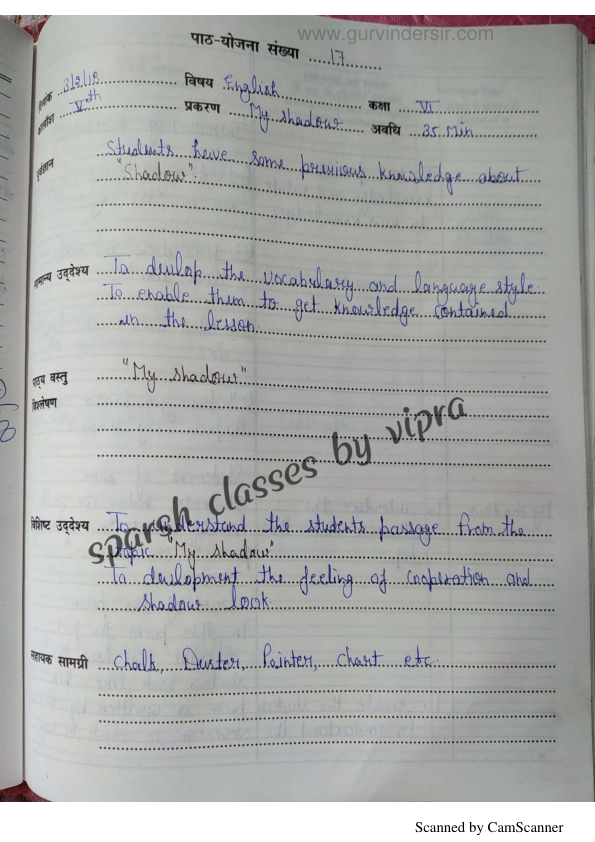 www.gurvindersir.com
पाठ-योजना संख्या 17
दिनांक 3/2/18 विषय English
कालांश Vth प्रकरण My shadow कक्षा VI
अवधि 35 Min
पूर्वज्ञान Students have some previous knowledge about
"Shadow"
सामान्य उद्देश्य To devlop the vocabulary and language style.
To enable them to get knowledge contained
in the lesson
पाठ्य वस्तु विश्लेषण "My shadow"
sparsh classes by vipra
विशिष्ट उद्देश्य To understand the students passage from the
topic "My shadow"
To development the feeling of cooperation and
shadow look
सहायक सामग्री Chalk, Duster, Pointer, chart etc.
Scanned by CamScanner